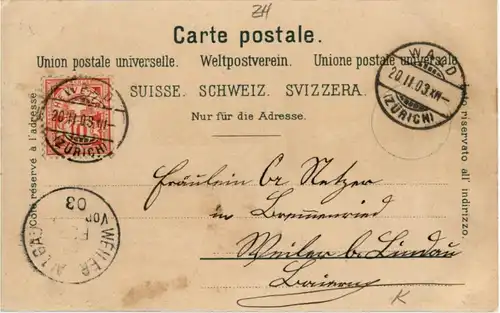 ZH
Carte postale.
Union postale universelle. Weltpostverein. Unione postale universale
SUISSE. SCHWEIZ. SVIZZERA.
Nur für die Adresse.
Côté réservé à l'adresse
lato riservato all' indirizzo.
WALD
20.II.03.XII-
(ZÜRICH)
WALD
20.II.03.XII-
(ZÜRICH)
10
WEILER ALLGÄU
Vor
03
Fräulein Cr Netzer
in Bremenried
Weiler b. Lindau
Baiern
K